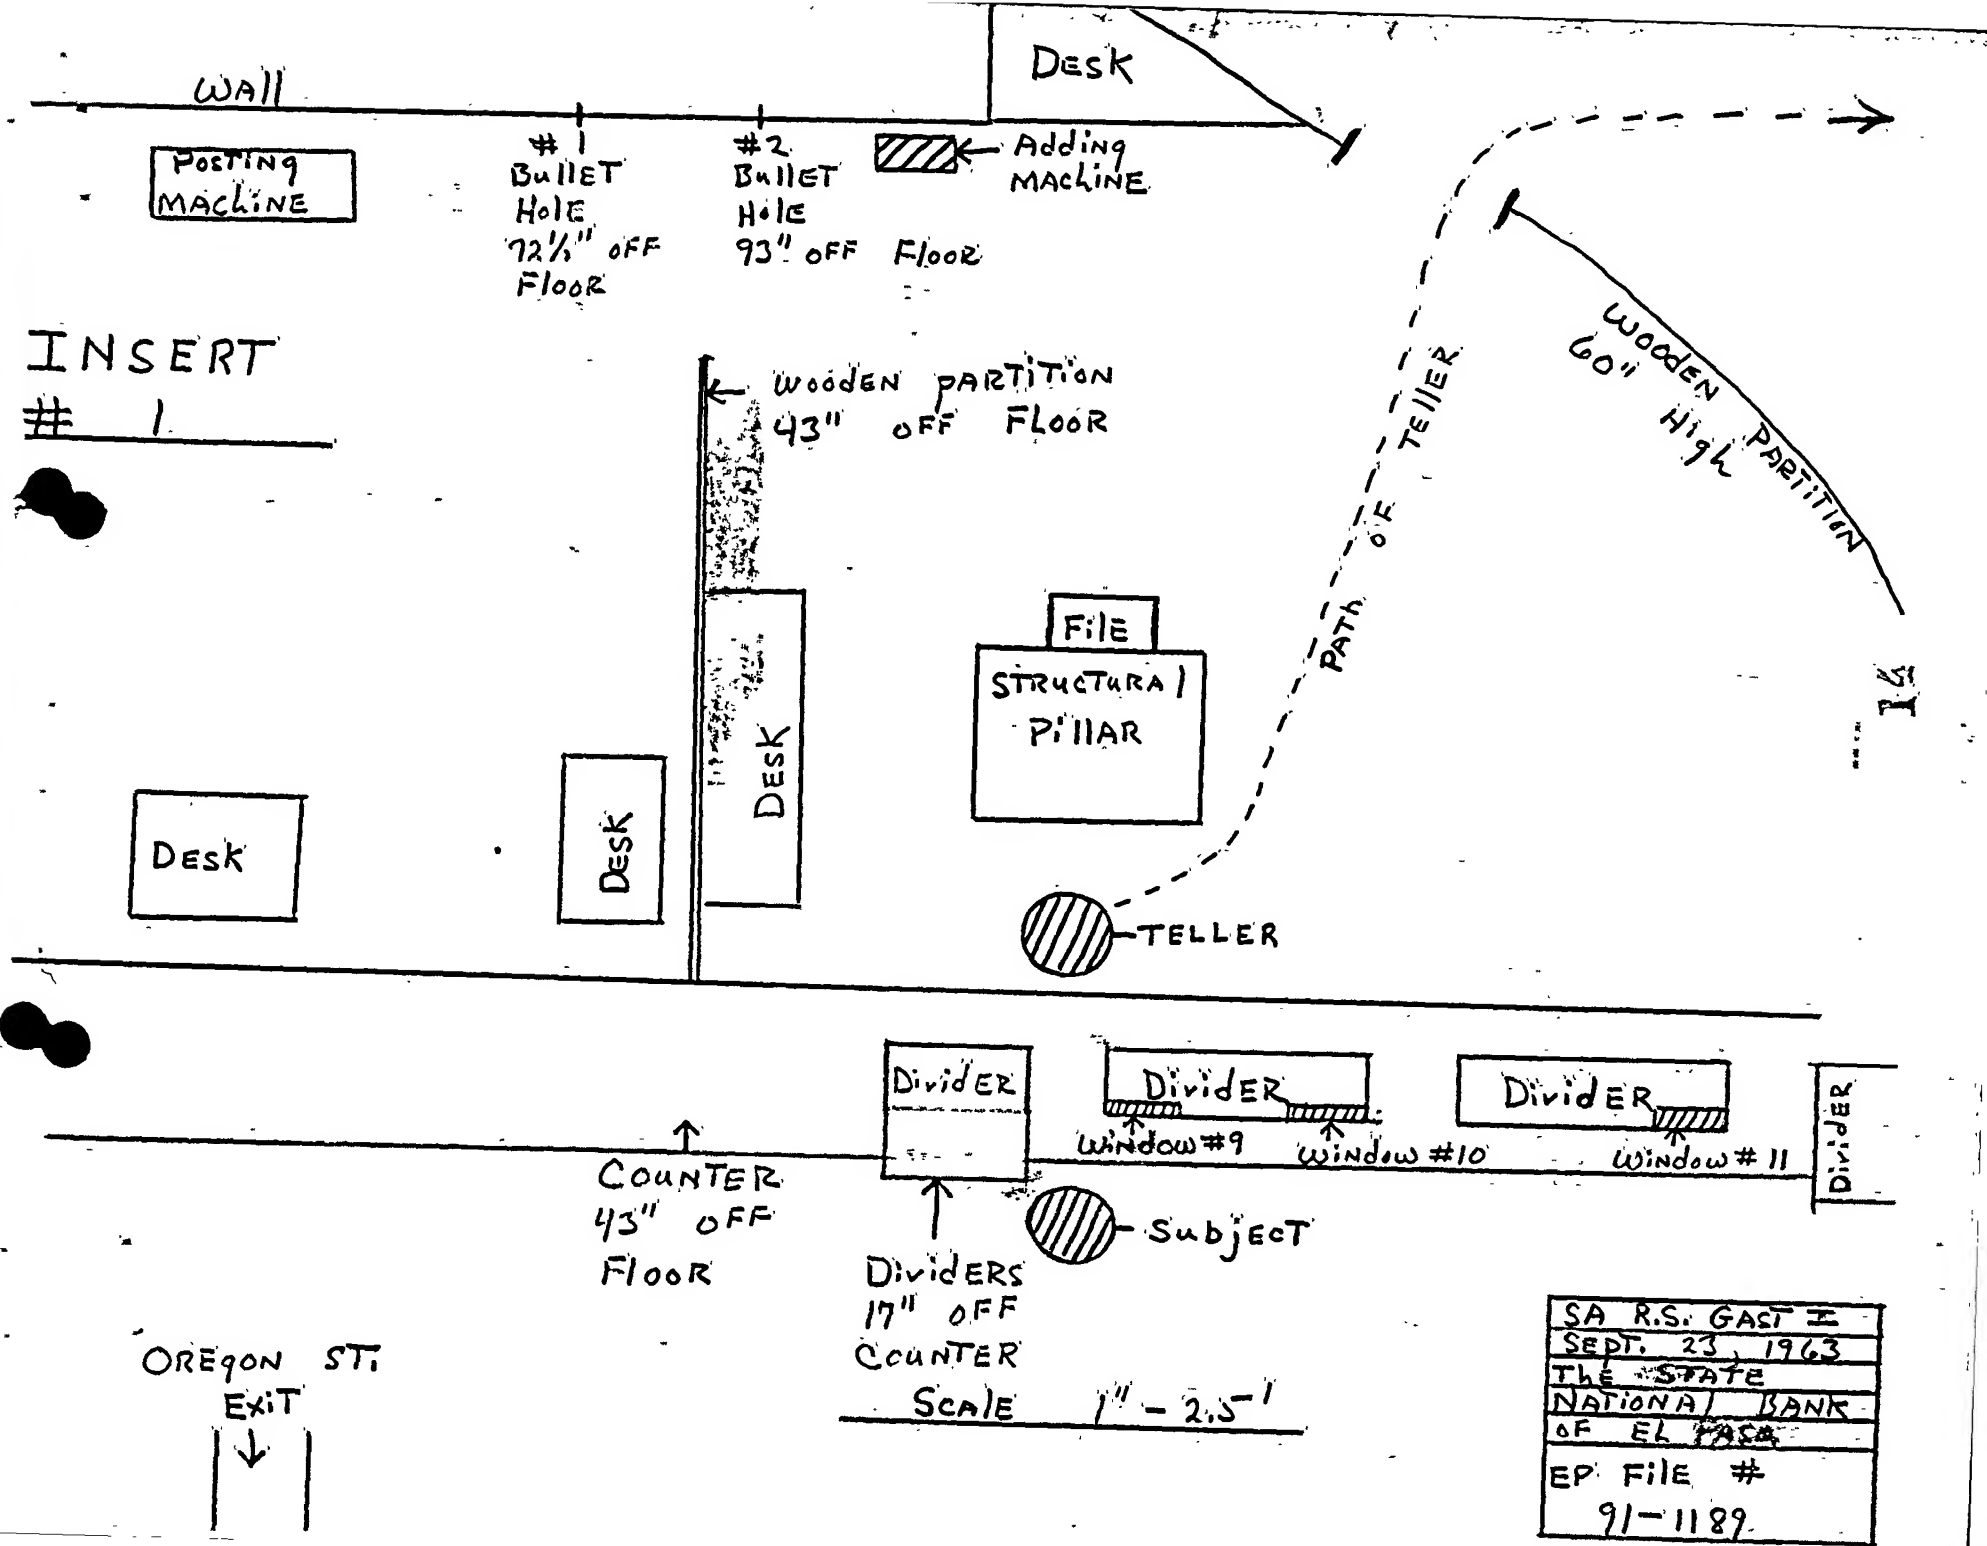 WAll
DESK
POSTING
MACHINE
# 1
BullET
HolE
72½" OFF
FlooR
#2
BullET
HolE
93" OFF FlooR
Adding
MAChiNE
INSERT
# 1
WOOdEN PARTiTiON
43" OFF FLOOR
WOODEN PARTiTiON
60" High
PATh OF TEllER
FilE
STRUCTURAl
PillAR
DESK
DESK
DESK
TELLER
DividER
DividER
DividER
DividER
WiNdow #9
WiNdow #10
WiNdow # 11
COUNTER
43" OFF
FlooR
SubjECT
DividERS
17" OFF
COUNTER
OREgON ST.
EXiT
SCAlE 1" - 2.5'
SA R.S. GAST II
SEPT. 23, 1963
ThE STATE
NATIONAl BANK
OF EL PASO
EP FilE #
91-1189